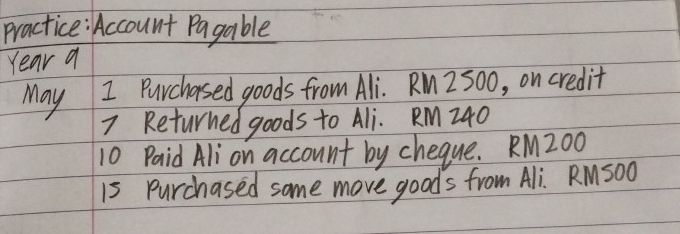 Practice: Account Pagable
Year 9
May 1 Purchased goods from Ali. RM 2500, on credit
7 Returned goods to Ali. RM 240
10 Paid Ali on account by cheque. RM 200
15 Purchased some move goods from Ali. RM500